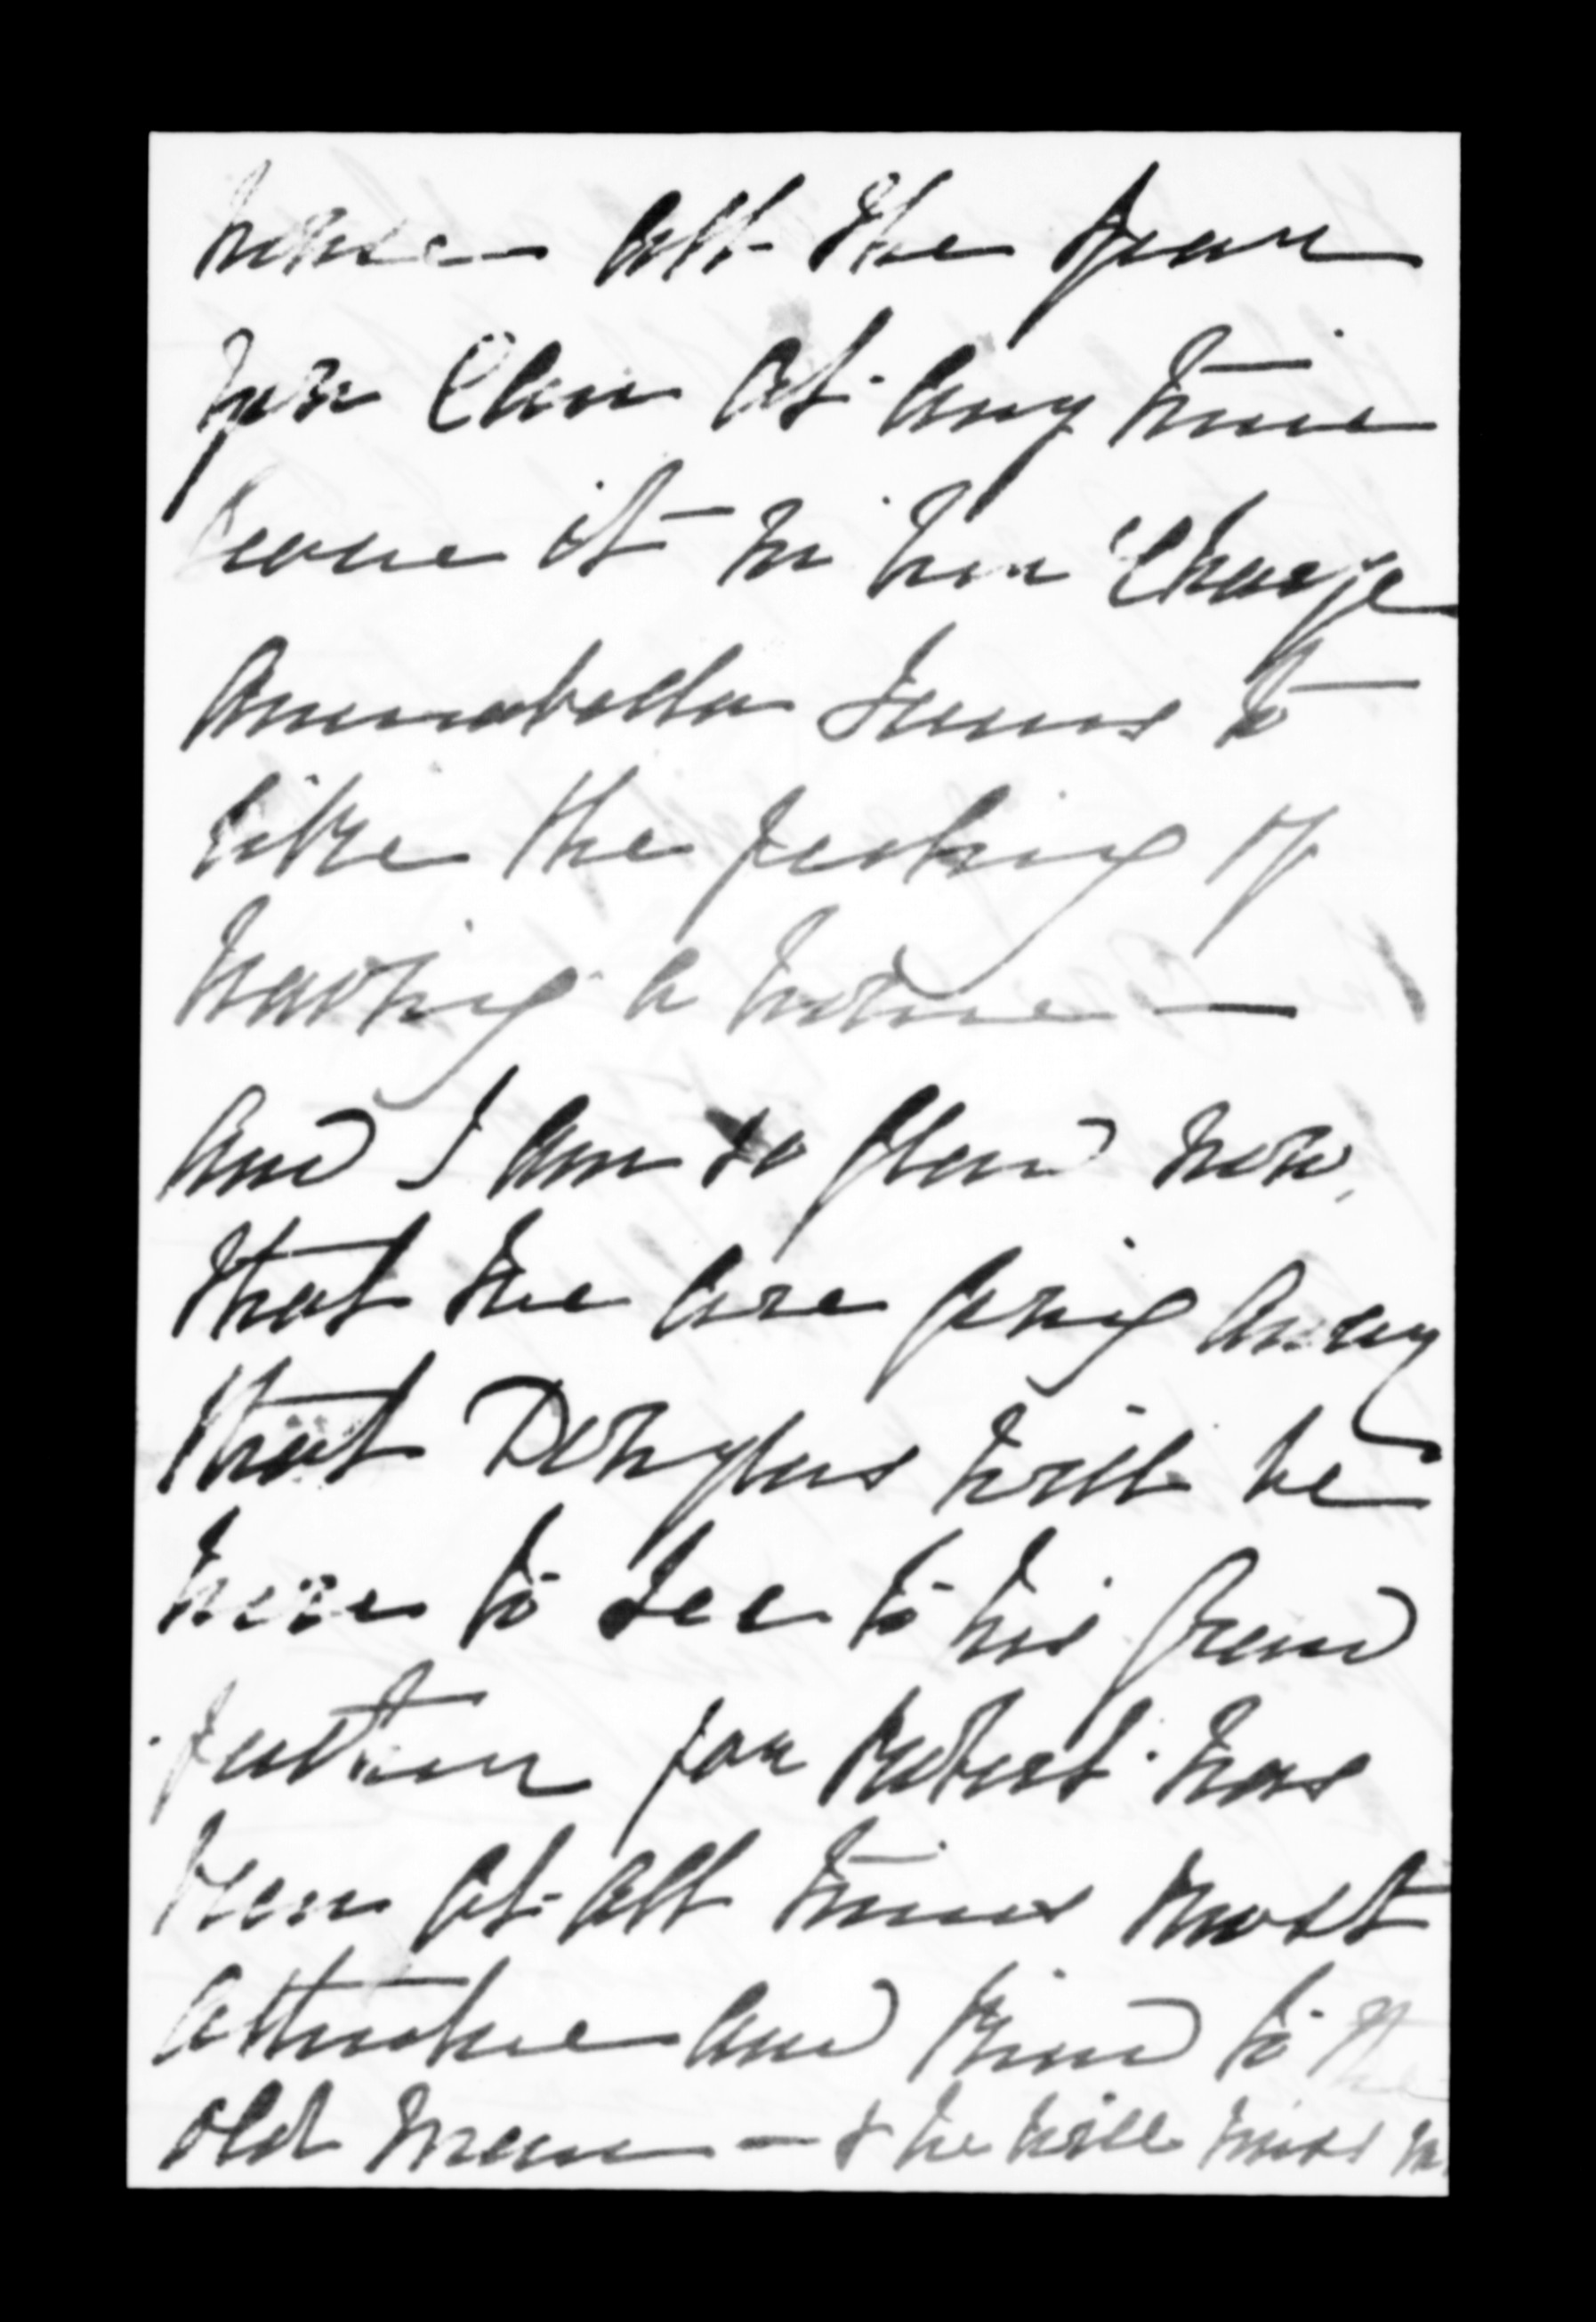 house all the year
you can at any time
leave it in her charge
Annabella seems to
like the feeling of
having a home —
and I am so glad now,
that we are going away
that Douglas will be
here to see to his grand
father for Robert has
been at all times most
attentive and kind to the
old man — & he will miss